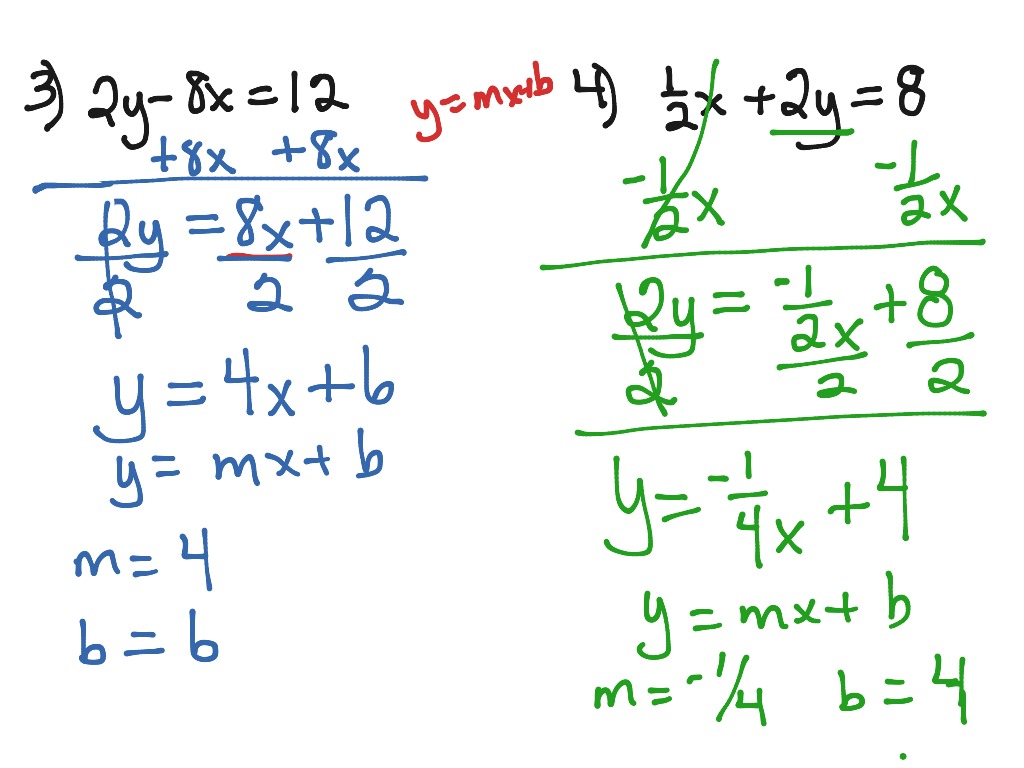 3) 2y - 8x = 12
+8x +8x
2y = 8x + 12
2 2 2
y = 4x + 6
y = mx + b
m = 4
b = 6
y = mx + b
4) 1/2 x + 2y = 8
-1/2 x -1/2 x
2y = -1/2 x + 8
2 2 2
y = -1/4 x + 4
y = mx + b
m = -1/4 b = 4